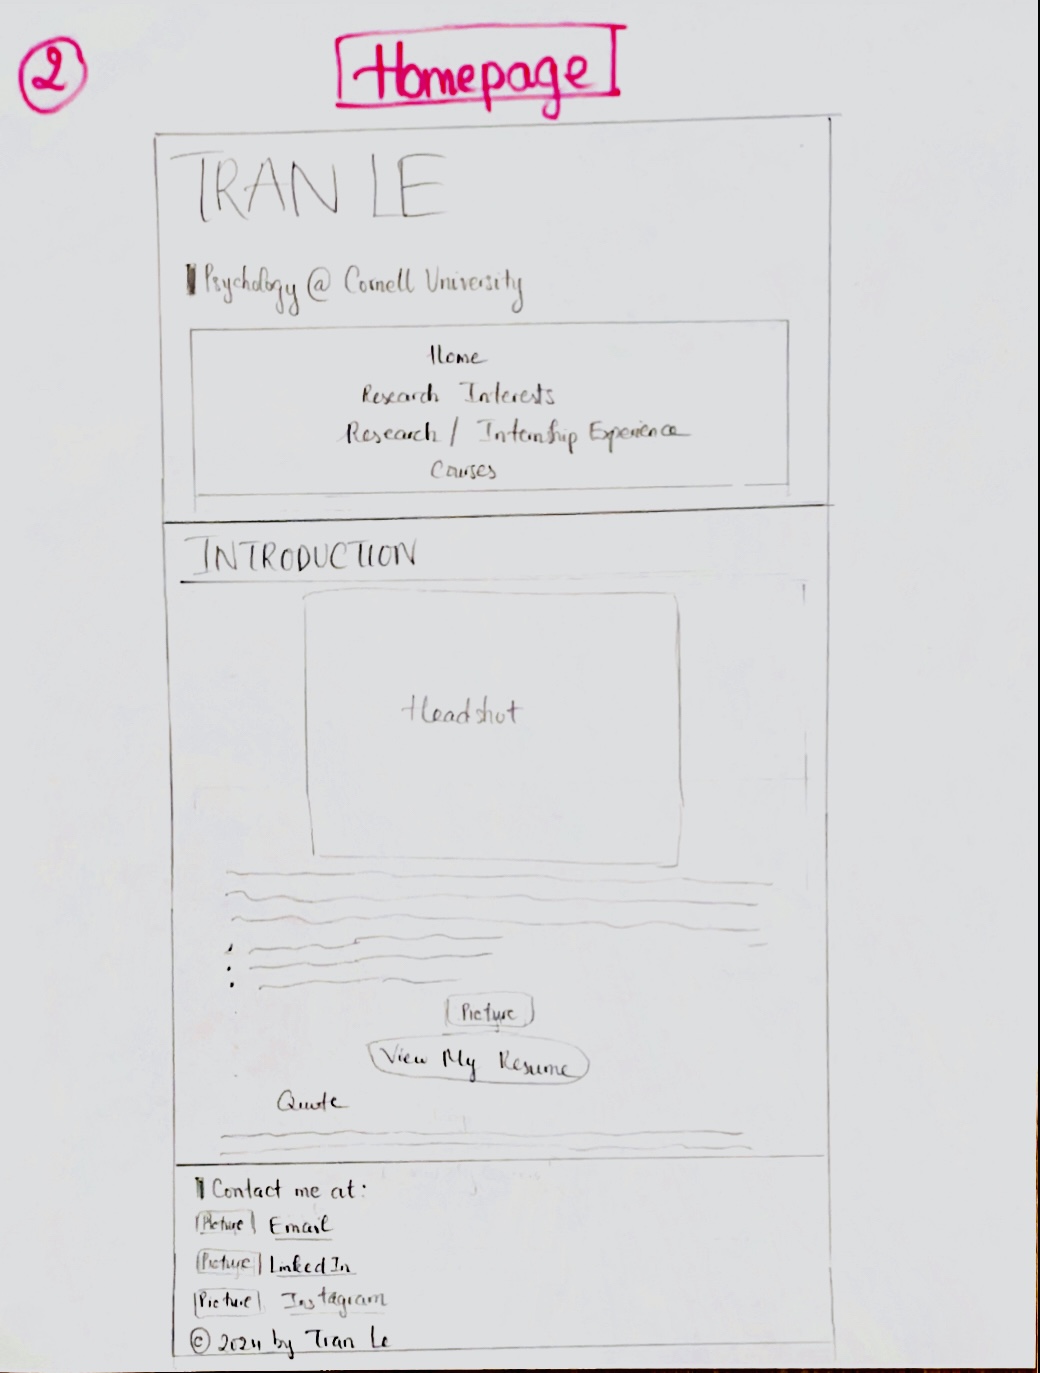 2
Homepage
TRAN LE
Psychology @ Cornell University
Home
Research Interests
Research / Internship Experience
Courses
INTRODUCTION
Headshot
Picture
View My Resume
Quote
Contact me at:
Picture Email
Picture LinkedIn
Picture Instagram
© 2024 by Tran Le